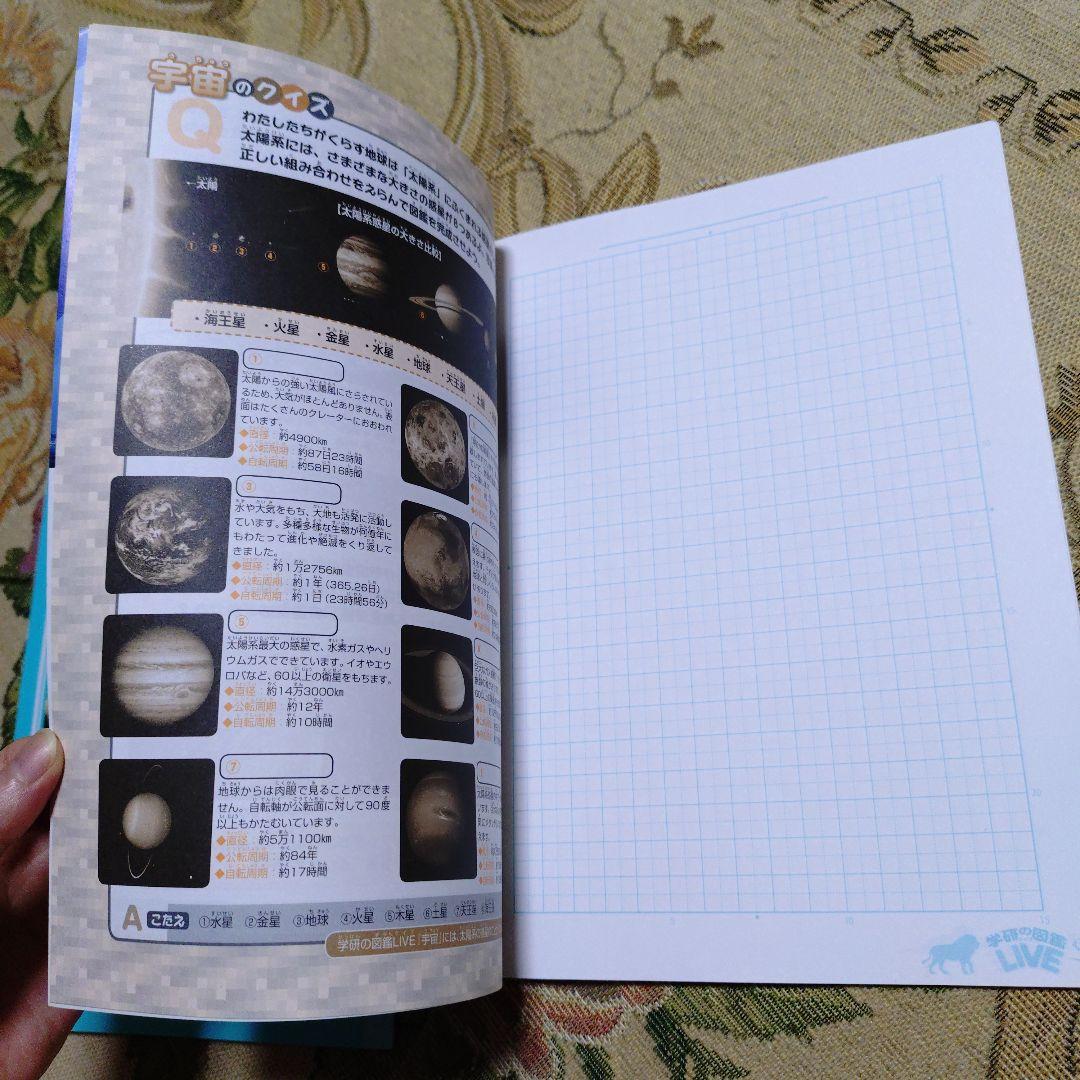 宇宙のクイズ
Q
わたしたちがくらす地球は「太陽系」にふくまれる
太陽系には、さまざまな大きさの惑星が8つある
正しい組み合わせをえらんで図鑑を完成させよう。
←太陽
【太陽系惑星の大きさ比較】
① ② ③ ④ ⑤ ⑥
・海王星 ・火星 ・金星 ・水星 ・地球 ・天王星 ・土星
①
太陽からの強い太陽風にさらされてい
るため、大気がほとんどありません。表
面はたくさんのクレーターにおおわれ
ています。
◆直径：約4900km
◆公転周期：約87日23時間
◆自転周期：約58日16時間
③
水や大気をもち、大地も活発に活動し
ています。多種多様な生物が何億年に
もわたって進化や絶滅をくり返して
きました。
◆直径：約1万2756km
◆公転周期：約1年（365.26日）
◆自転周期：約1日（23時間56分）
⑤
太陽系最大の惑星で、水素ガスやヘリ
ウムガスでできています。イオやエウ
ロパなど、60以上の衛星をもちます。
◆直径：約14万3000km
◆公転周期：約12年
◆自転周期：約10時間
⑦
地球からは肉眼で見ることができま
せん。自転軸が公転面に対して90度
以上もかたむいています。
◆直径：約5万1100km
◆公転周期：約84年
◆自転周期：約17時間
A こたえ ①水星 ②金星 ③地球 ④火星 ⑤木星 ⑥土星 ⑦天王星
学研の図鑑LIVE「宇宙」には、太陽系の
5 10 15
15
20
学研の図鑑
LIVE